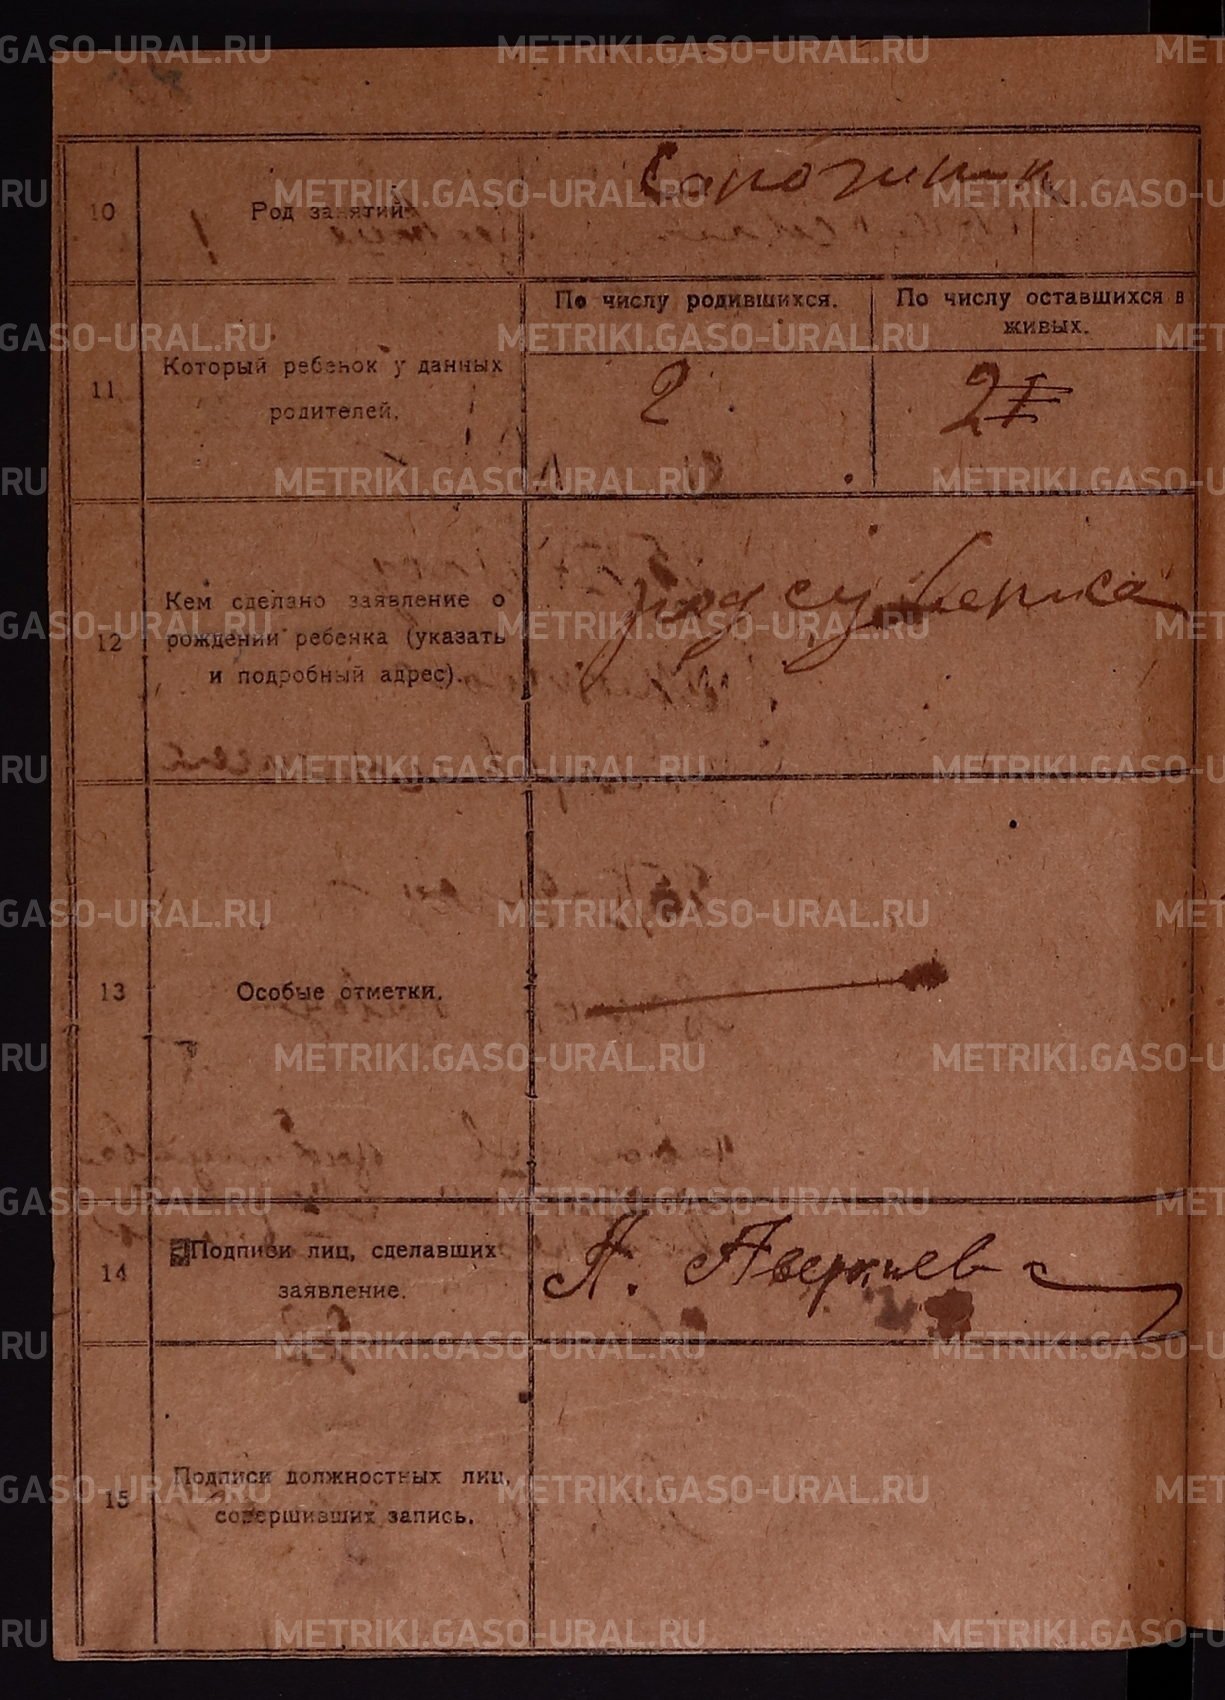 10
Род занятий.
Сапожник
11
Который ребенок у данных
родителей.
По числу родившихся.
По числу оставшихся в
живых.
2
2
12
Кем сделано заявление о
рождении ребенка (указать
и подробный адрес).
13
Особые отметки.
14
Подписи лиц, сделавших
заявление.
А. Аверкиев
15
Подписи должностных лиц,
совершивших запись.
METRIKI.GASO-URAL.RU